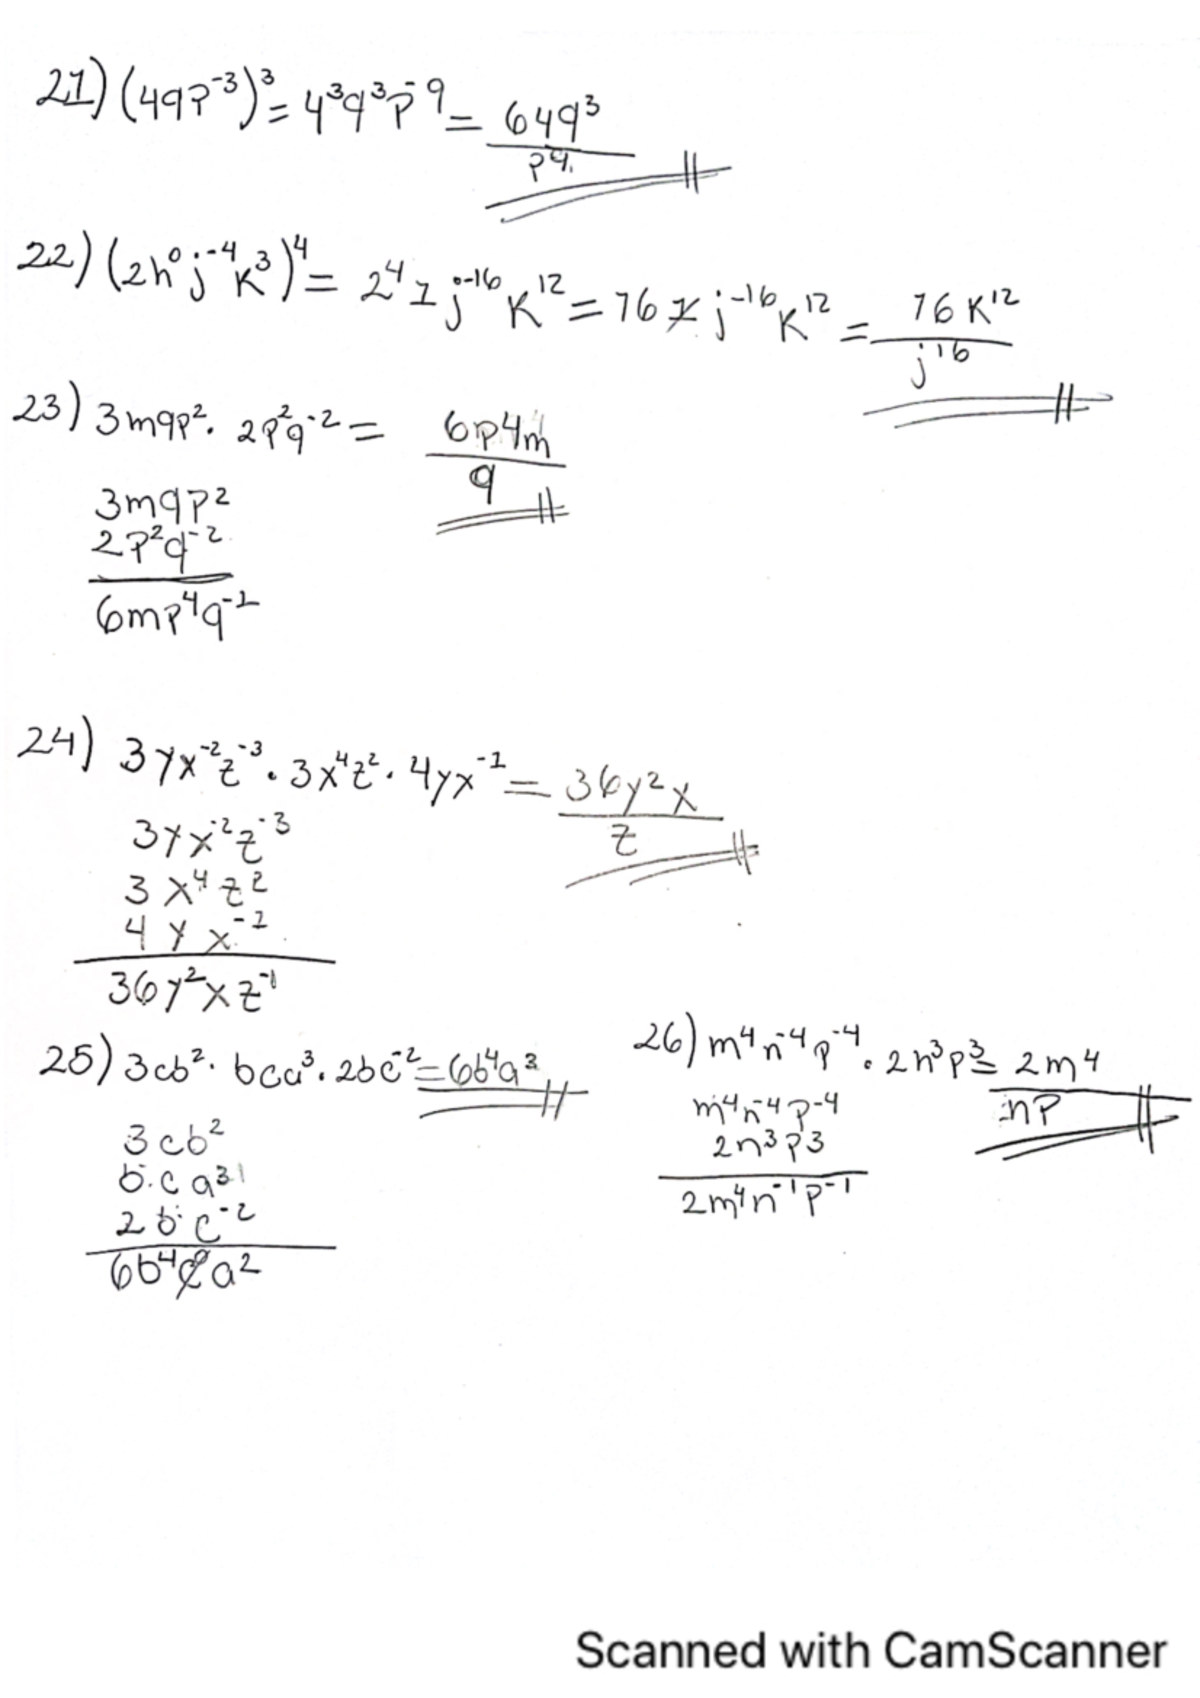 21) (4qp⁻³)³ = 4³q³p⁻⁹ = 64q³/p⁹
22) (2h⁰j⁻⁴k³)⁴ = 2⁴ 1 j⁻¹⁶ k¹² = 16 1 j⁻¹⁶ k¹² = 16k¹²/j¹⁶
23) 3mqp² · 2p²q⁻² = 6p4m/q
3mqp²
2p²q⁻²
6mp⁴q⁻¹
24) 3yx⁻²z⁻³ · 3x⁴z² · 4yx⁻¹ = 36y²x/z
3yx⁻²z⁻³
3x⁴z²
4yx⁻¹
36y²xz⁻¹
25) 3cb² · bca³ · 2bc⁻² = 6b⁴a³
3cb²
b·ca³
2bc⁻²
6b⁴c⁰a²
26) m⁴n⁻⁴p⁻⁴ · 2n³p³ = 2m⁴/np
m⁴n⁻⁴p⁻⁴
2n³p3
2m⁴n⁻¹p⁻¹
Scanned with CamScanner